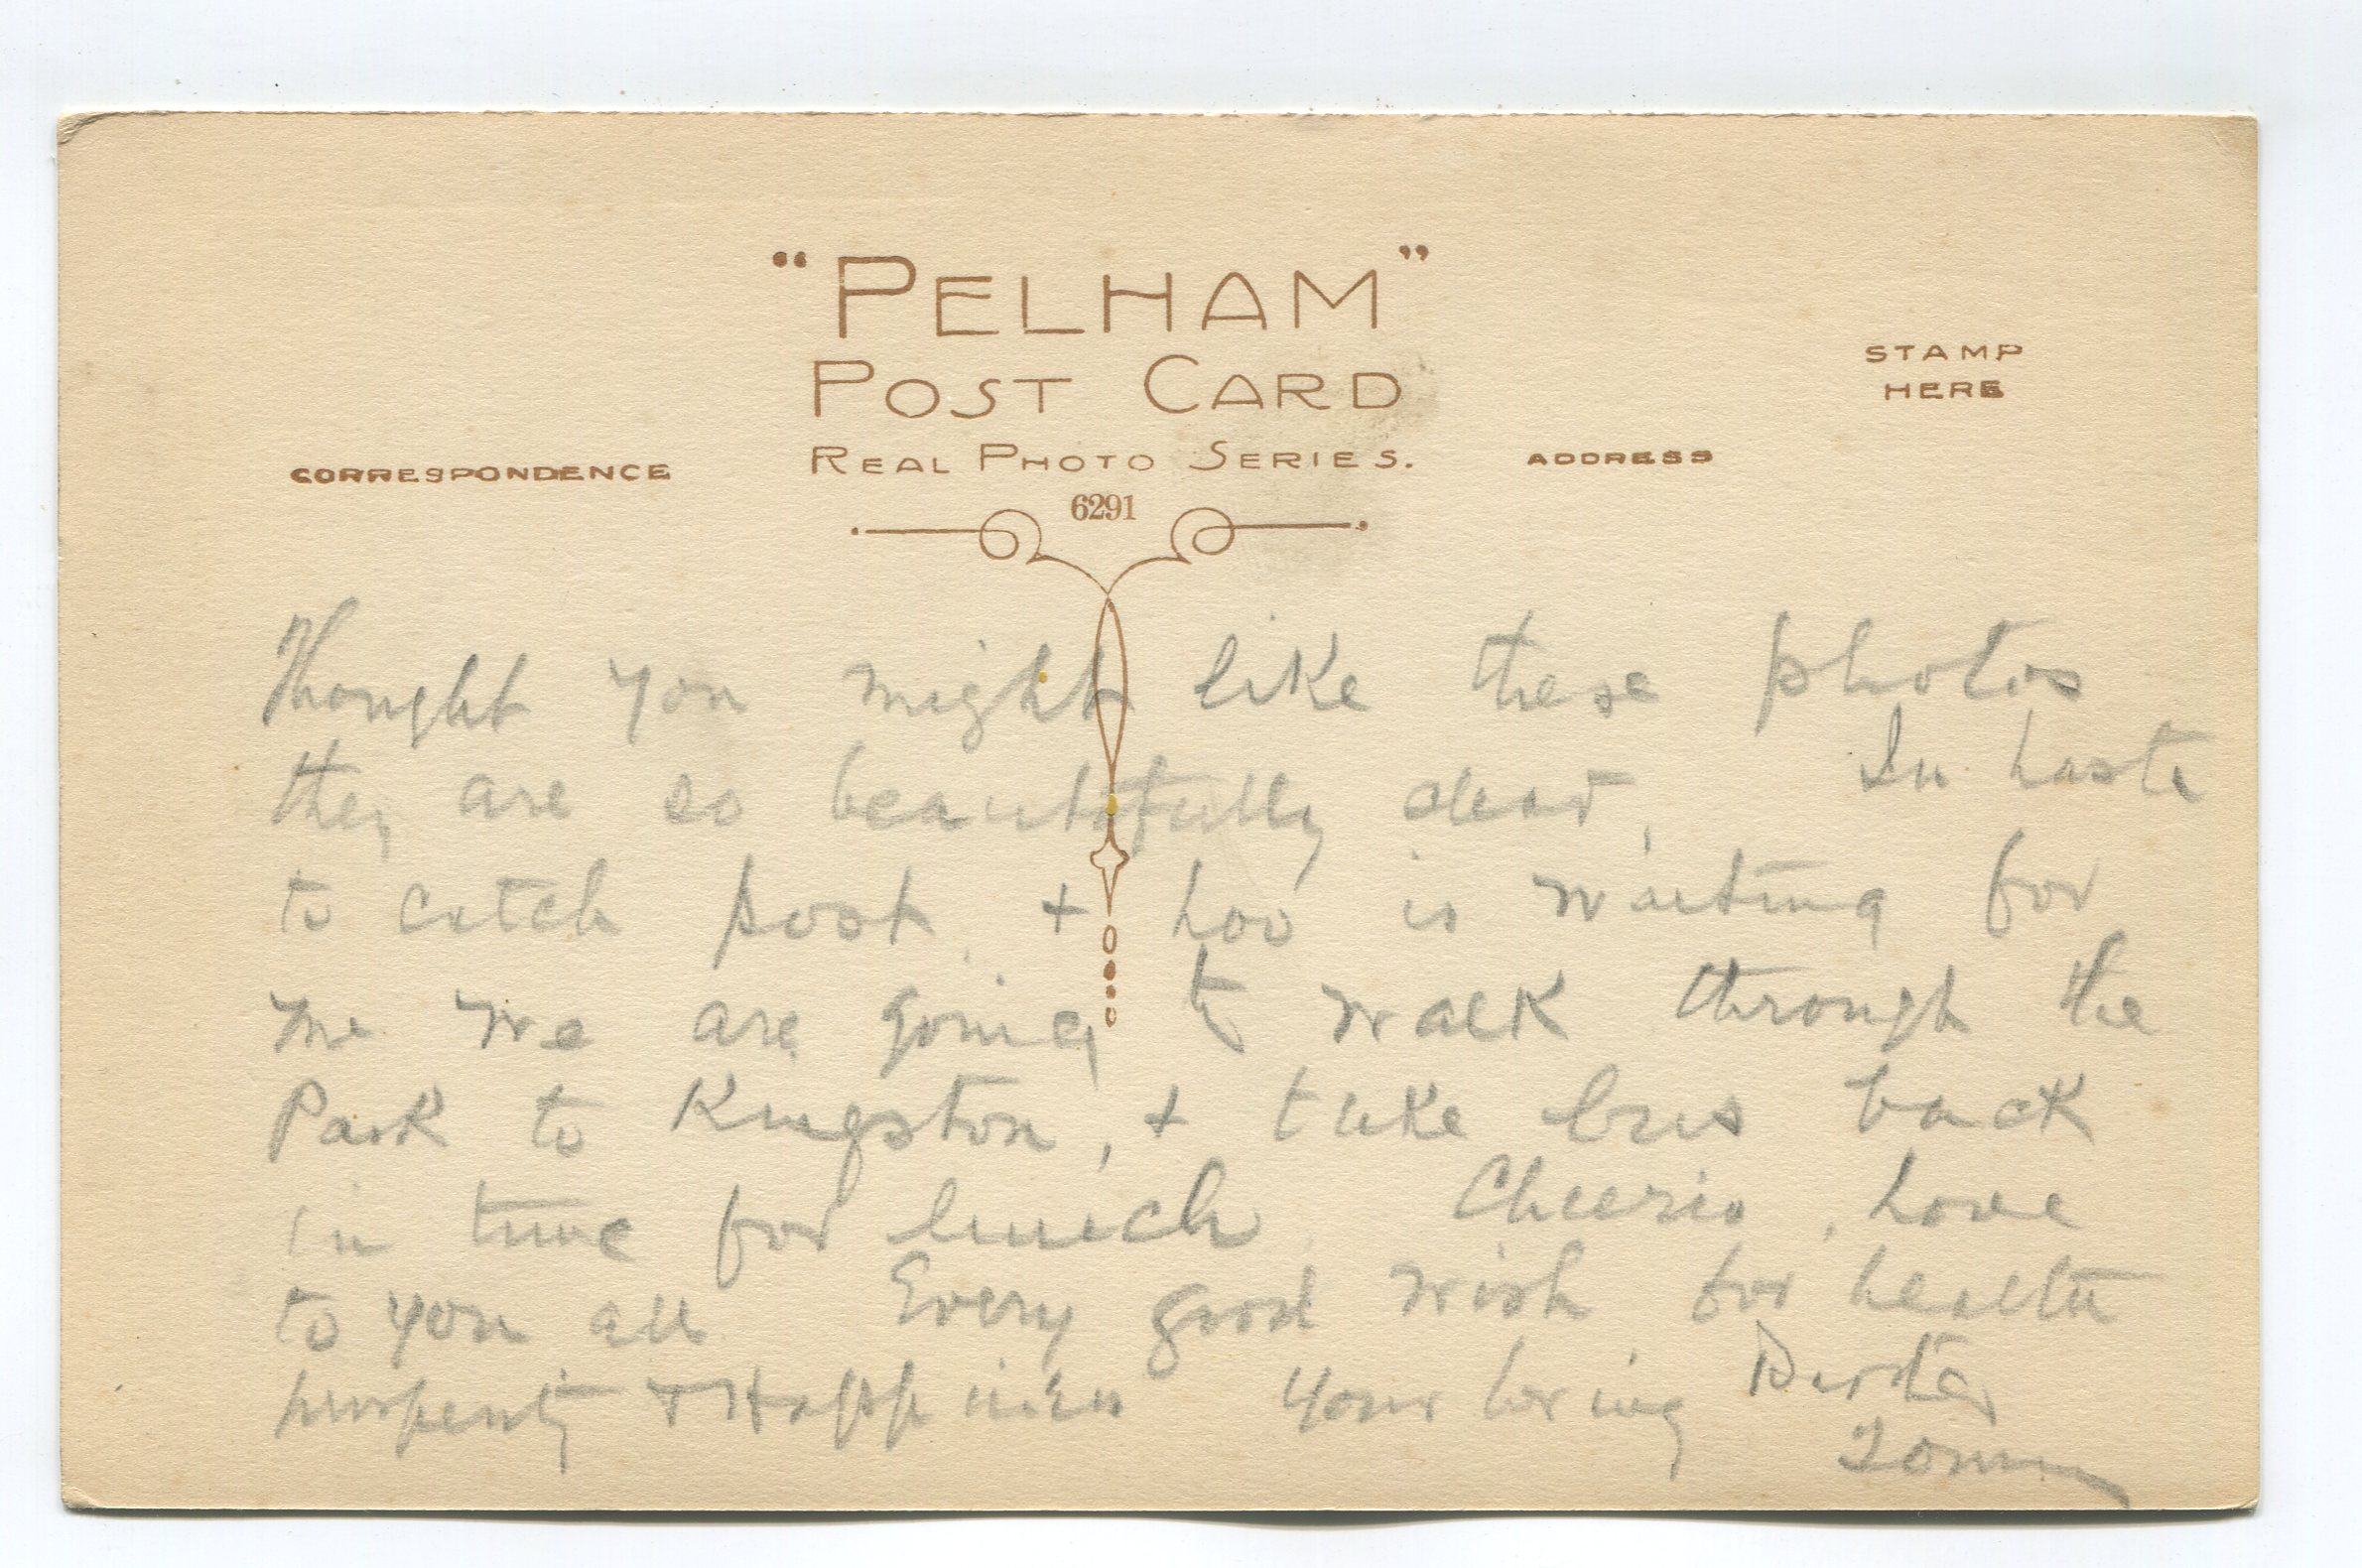 "PELHAM"
POST CARD
REAL PHOTO SERIES.
STAMP
HERE
CORRESPONDENCE
ADDRESS
6291
Thought you might like these photos
they are so beautifully clear, In haste
to catch post, + is waiting for
me we are going to walk through the
Park to Kingston, + take bus back
in time for lunch Cheerio, Love
to you all Every good wish for health
prosperity + Happiness your loving